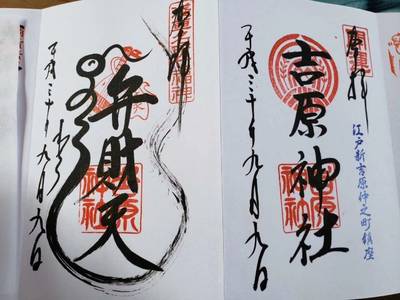 奉拝
江戸新吉原仲之町鎮座
吉原神社
吉原神社
平成三十年九月九日
奉拝
弁財天
吉原神社
平成三十年九月九日